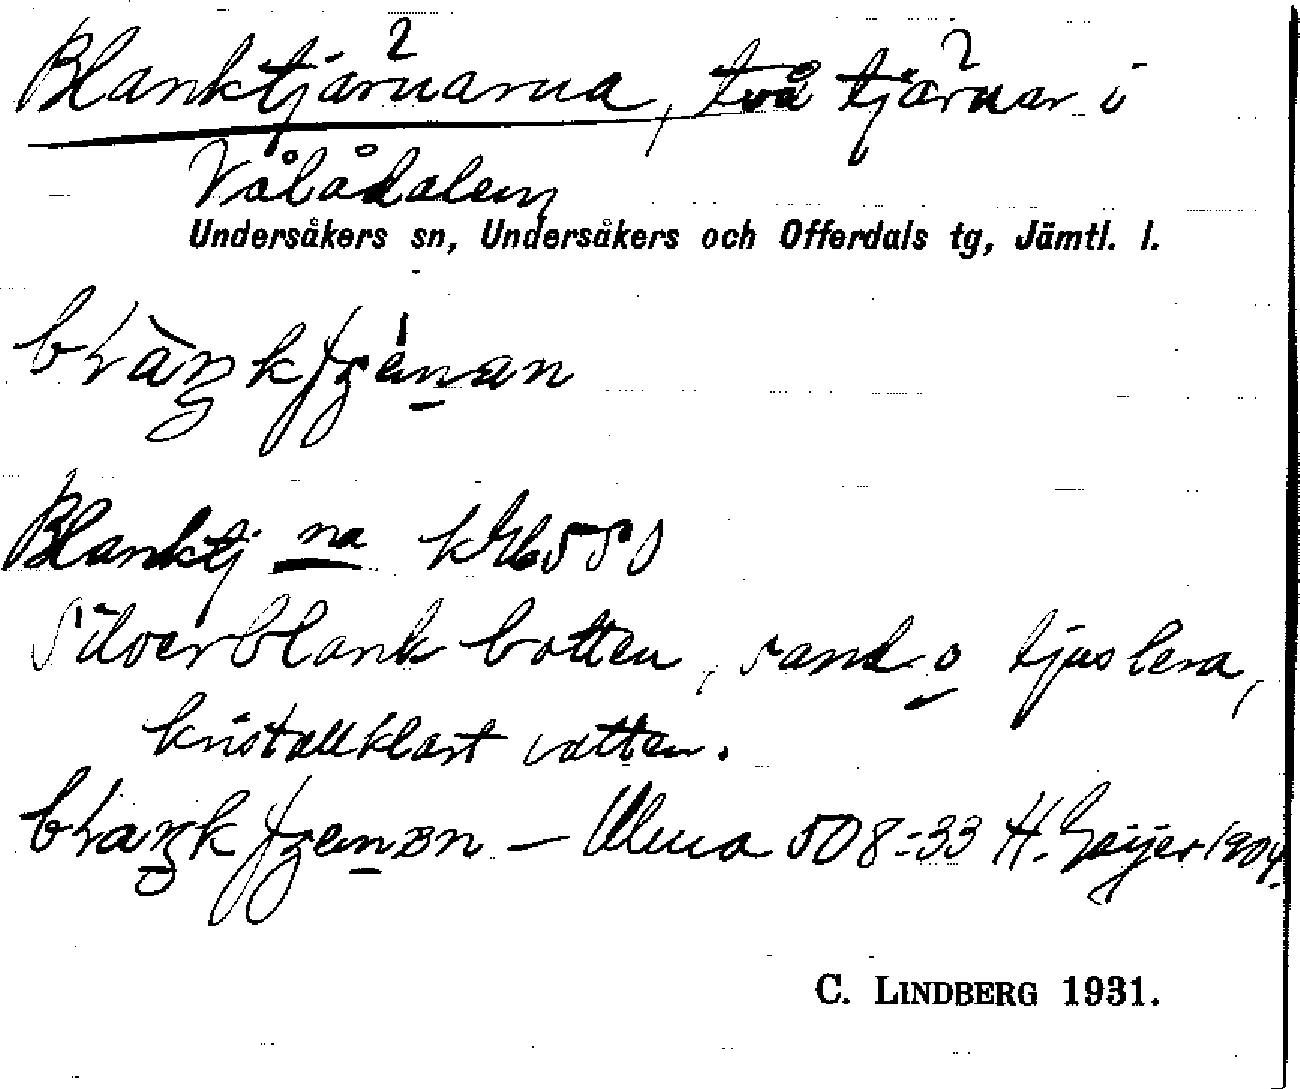 Blanktjärnarna, två tjärnar i
Vålådalen
Undersåkers sn, Undersåkers och Offerdals tg, Jämtl. l.
Blanktj na
Silverblank botten, sand o ljus lera,
kristallklart vatten.
— Ulma 508:33 H. Geijer 1904.
C. LINDBERG 1931.